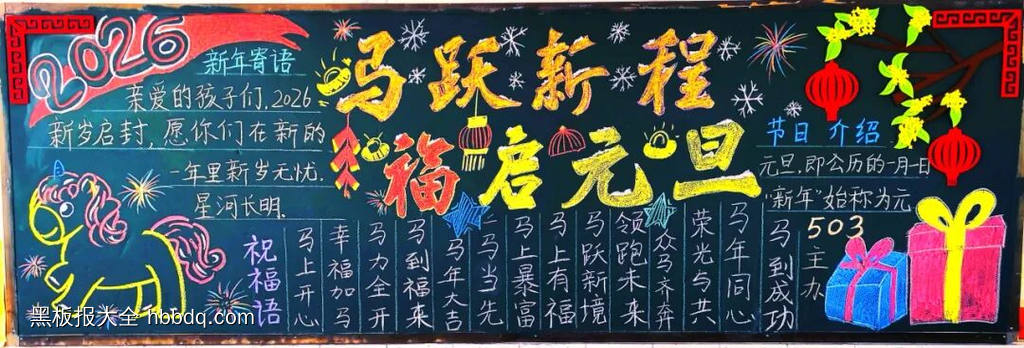 2026
新年寄语
亲爱的孩子们,2026
新岁启封,愿你们在新的
一年里新岁无忧,
星河长明.
马跃新程
福启元旦
节日介绍
元旦,即公历的一月一日
"新年"始称为元
503
主办
祝福语
马上开心
幸福加马
马力全开
马到福来
马年大吉
马当先
马上暴富
马上有福
马跃新境
领跑未来
众马齐奔
荣光与共
马年同心
马到成功
黑板报大全 hbbdq.com